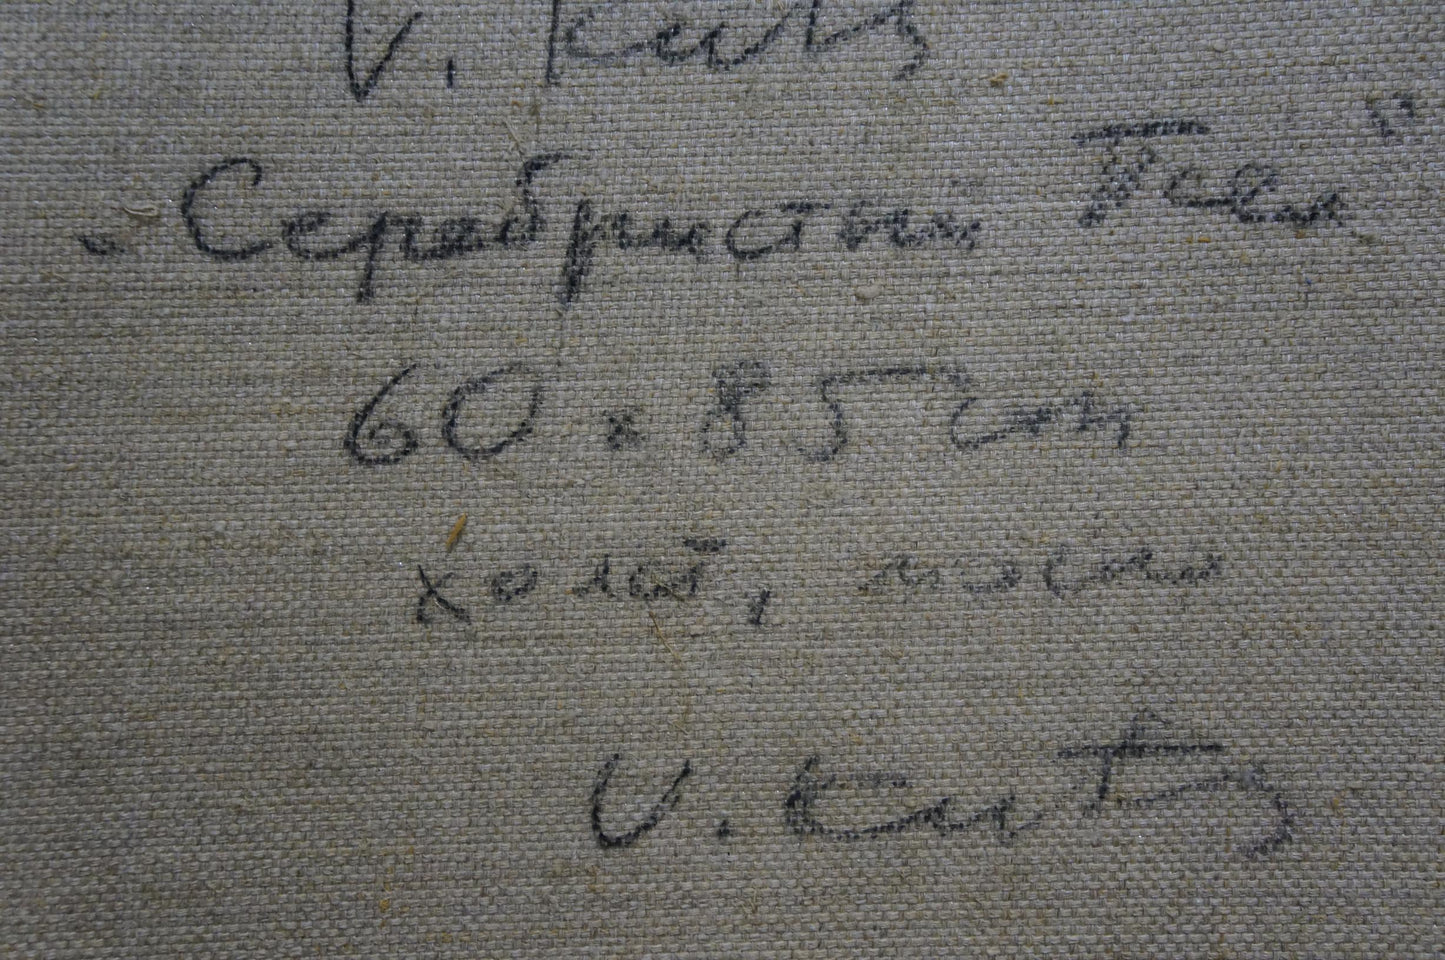 V. Kutz
„Серебристый
60 x 85 см
холст, масло
V. Kutz